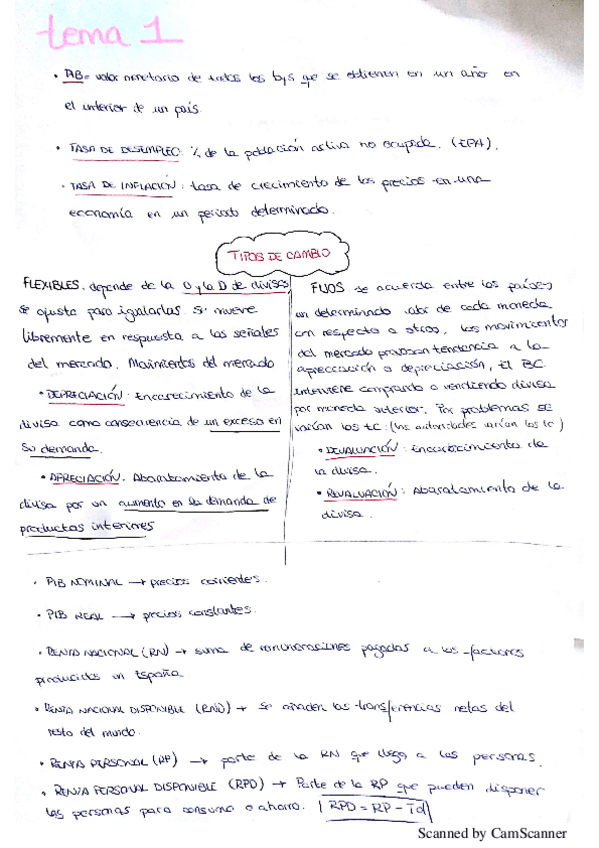 tema 1
• PIB = valor monetario de todos los bys que se obtienen en un año en
el interior de un país.
• TASA DE DESEMPLEO: % de la población activa no ocupada. (EPA).
• TASA DE INFLACIÓN: tasa de crecimiento de los precios en una
economía en un periodo determinado.
TIPOS DE CAMBIO
FLEXIBLES. depende de la O y la D de divisas
se ajusta para igualarlas. Se mueve
libremente en respuesta a las señales
del mercado. Movimientos del mercado
• DEPRECIACIÓN: Encarecimiento de la
divisa como consecuencia de un exceso en
su demanda.
• APRECIACIÓN. Abaratamiento de la
divisa por un aumento en la demanda de
productos interiores
FIJOS se acuerda entre los países
un determinado valor de cada moneda
con respecto a otros, los movimientos
del mercado provocan tendencia a la
apreciación o depreciación, el BC
interviene comprando o vendiendo divisa
por moneda interior. Por problemas se
varían los tc: (las autoridades varían los tc)
• DEVALUACIÓN: Encarecimiento de
la divisa.
• REVALUACIÓN: Abaratamiento de la
divisa.
• PIB NOMINAL → precios corrientes.
• PIB REAL → precios constantes.
• RENTA NACIONAL (RN) → suma de remuneraciones pagadas a los factores
producidos en España
• RENTA NACIONAL DISPONIBLE (RND) → se añaden las transferencias netas del
resto del mundo.
• RENTA PERSONAL (RP) → parte de la RN que llega a las personas.
• RENTA PERSONAL DISPONIBLE (RPD) → Parte de la RP que pueden disponer
las personas para consumo o ahorro. | RPD = RP - Td |
Scanned by CamScanner